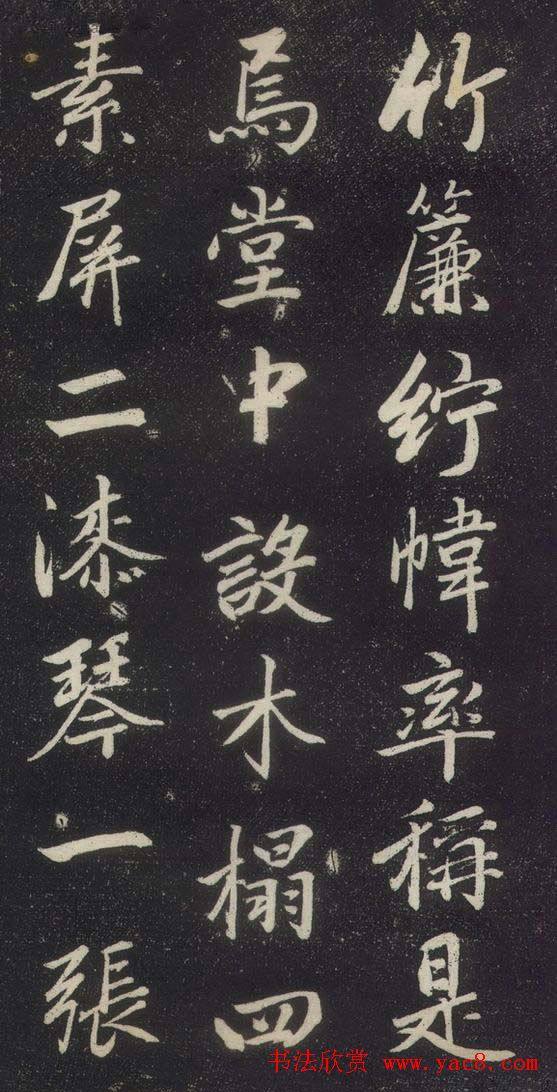 竹簾紵幃率稱是
焉堂中設木榻四
素屏二漆琴一張
书法欣赏 www.yac8.com